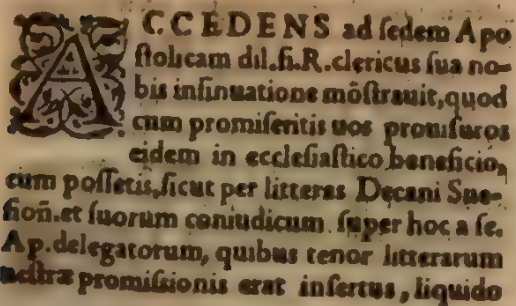 ACCEDENS ad sedem Apo
stolicam dil.fi.R.clericus sua no-
bis insinuatione mõstrauit,quod
cum promiseritis uos prouisuros
eidem in ecclesiastico beneficio,
cum possetis,sicut per litteras Decani Sues-
sioñ.et suorum coniudicum super hoc a se.
Ap.delegatorum, quibus tenor litterarum
uestræ promissionis erat insertus, liquido